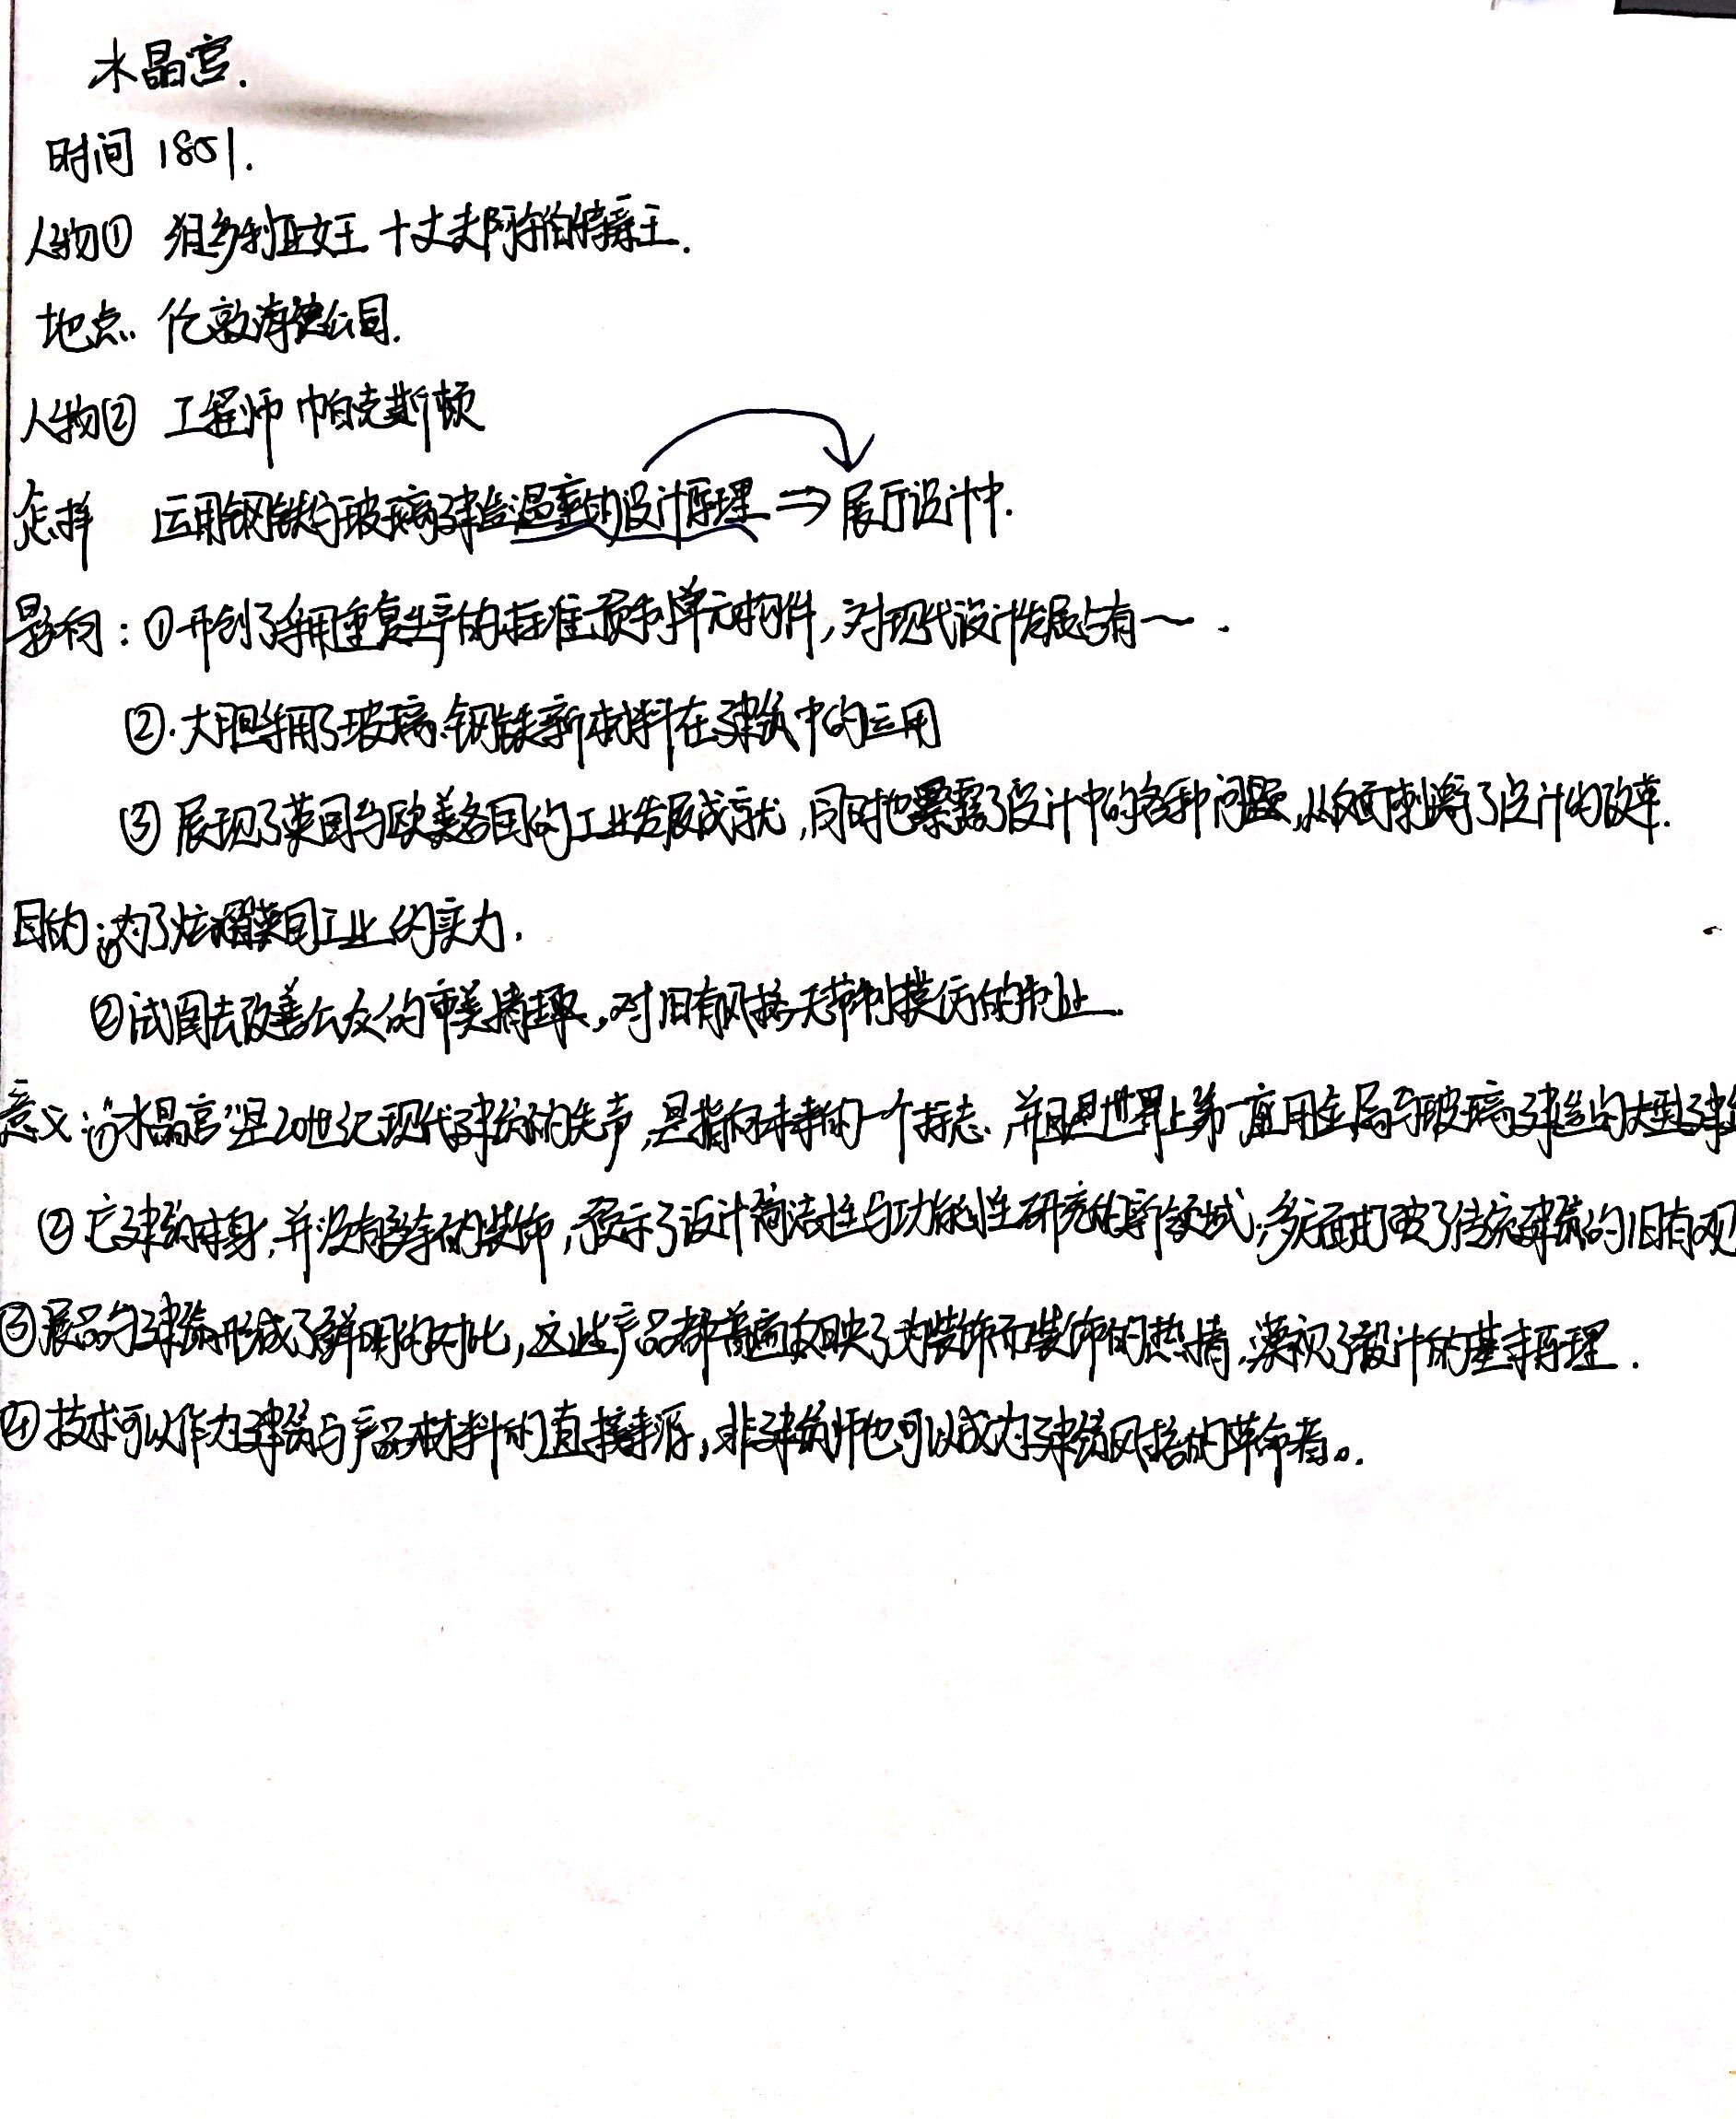 水晶宫.
时间 1851.
人物① 维多利亚女王 十丈夫阿尔伯特亲王.
地点. 伦敦海德公园.
人物② 工程师 帕克斯顿
怎样 运用钢铁与玻璃建造温室的设计原理 ⇒ 展厅设计中.
影响:①开创了采用重复生产的标准预制单元构件,对现代设计发展占有~.
②.大胆采用了玻璃.钢铁新材料在建筑中的运用
③展现了英国与欧美各国的工业发展成就,同时也暴露了设计中的各种问题,从反面刺激了设计的改革.
目的:①为了炫耀英国工业的实力.
②试图去改善公众的审美情趣,对旧有风格无节制模仿的制止.
意义:①"水晶宫"是20世纪现代建筑的先声,是指向未来的一个标志.并且是世界上第一座用金属与玻璃建造的大型建
②它建筑本身,并没有多余的装饰,预示了设计简洁性与功能性研究的新领域,多方面打破了传统建筑的旧有观
③展品与建筑形成了鲜明的对比,这些产品都普遍反映了为装饰而装饰的热情,漠视了设计的基本原理.
④技术可以作为建筑与产品材料的直接来源,非建筑师也可以成为建筑风格的革命者。.